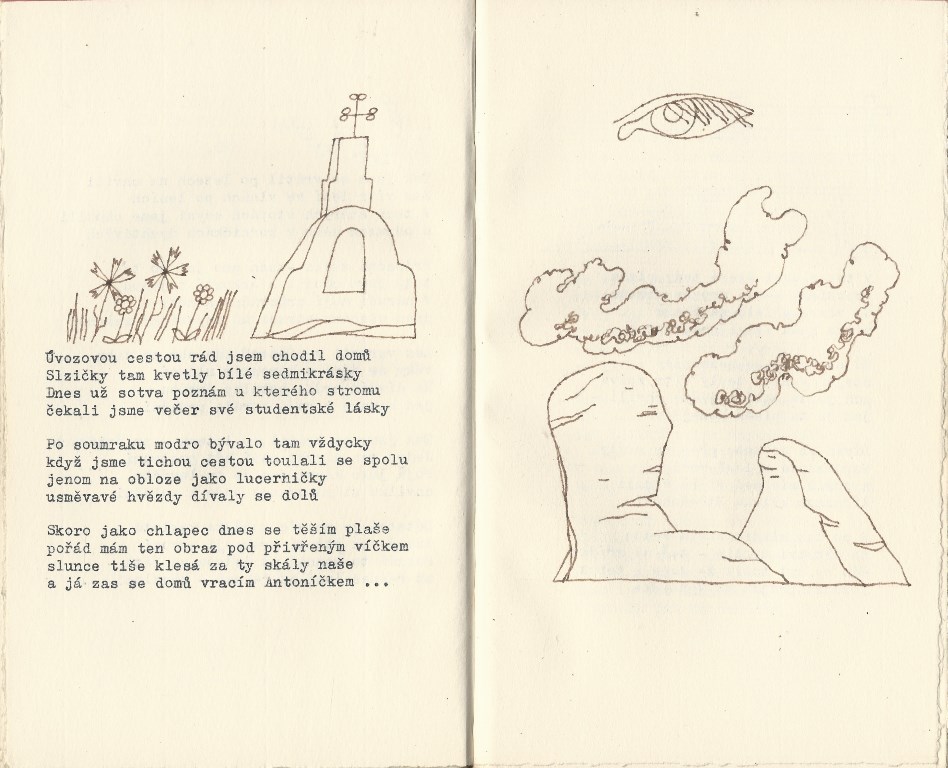 Úvozovou cestou rád jsem chodil domů
Slzičky tam kvetly bílé sedmikrásky
Dnes už sotva poznám u kterého stromu
čekali jsme večer své studentské lásky
Po soumraku modro bývalo tam vždycky
když jsme tichou cestou toulali se spolu
jenom na obloze jako lucerničky
usměvavé hvězdy dívaly se dolů
Skoro jako chlapec dnes se těším plaše
pořád mám ten obraz pod přivřeným víčkem
slunce tiše klesá za ty skály naše
a já zas se domů vracím Antoníčkem ...